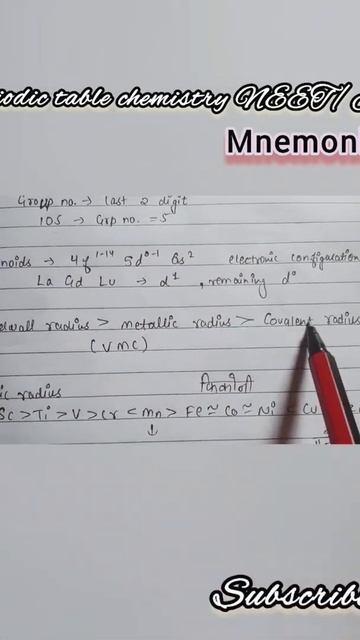 iodic table chemistry NEET/
Mnemoni
Group no. → last 2 digit
105 → Grp no. = 5
noids → 4f¹⁻¹⁴ 5d⁰⁻¹ 6s² electronic configuration
La Gd Lu → d¹, remaining d⁰
lwall radius > metallic radius > Covalent radius
(VMC)
ic radius
Sc > Ti > V > Cr < Mn > Fe ≃ Co ≃ Ni < Cu
↓
Subscribe